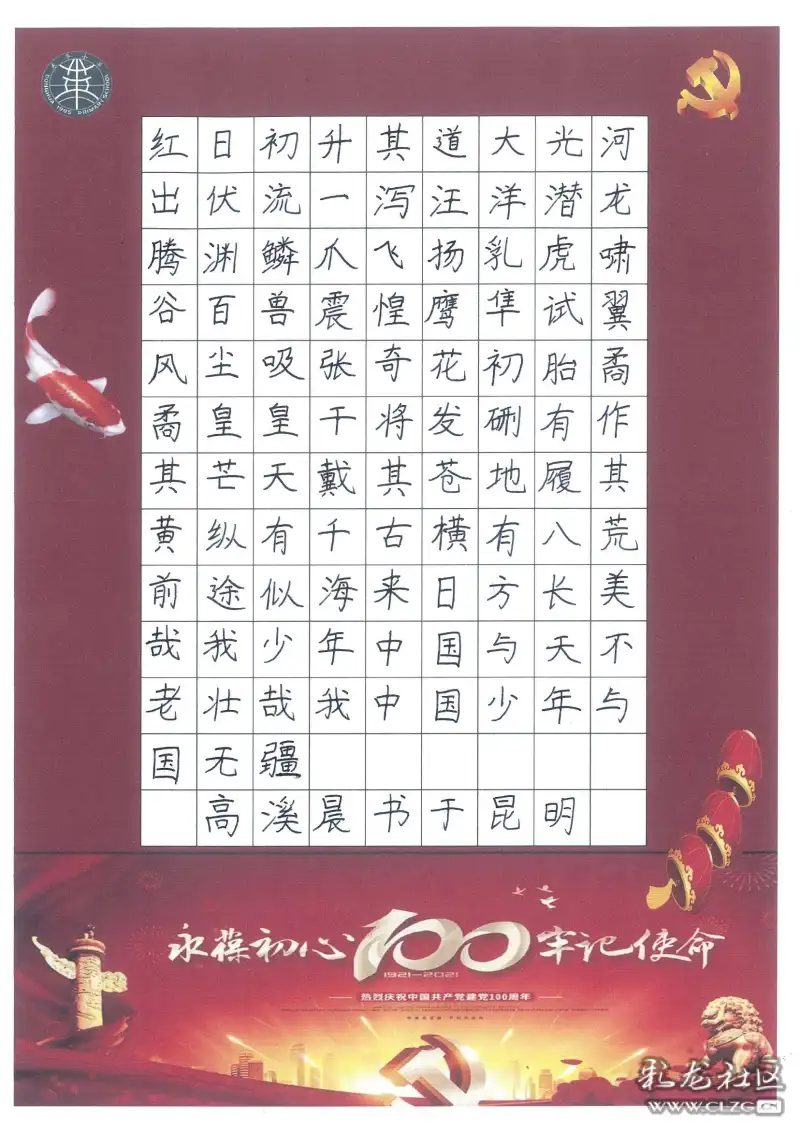 红日初升其道大光河
出伏流一泻汪洋潜龙
腾渊鳞爪飞扬乳虎啸
谷百兽震惶鹰隼试翼
风尘吸张奇花初胎矞
矞皇皇干将发硎有作
其芒天戴其苍地履其
黄纵有千古横有八荒
前途似海来日方长美
哉我少年中国与天不
老壮哉我中国少年与
国无疆
高溪晨书于昆明
永葆初心100牢记使命
1921-2021
热烈庆祝中国共产党建党100周年
彩龙社区
WWW.CLZG.CN